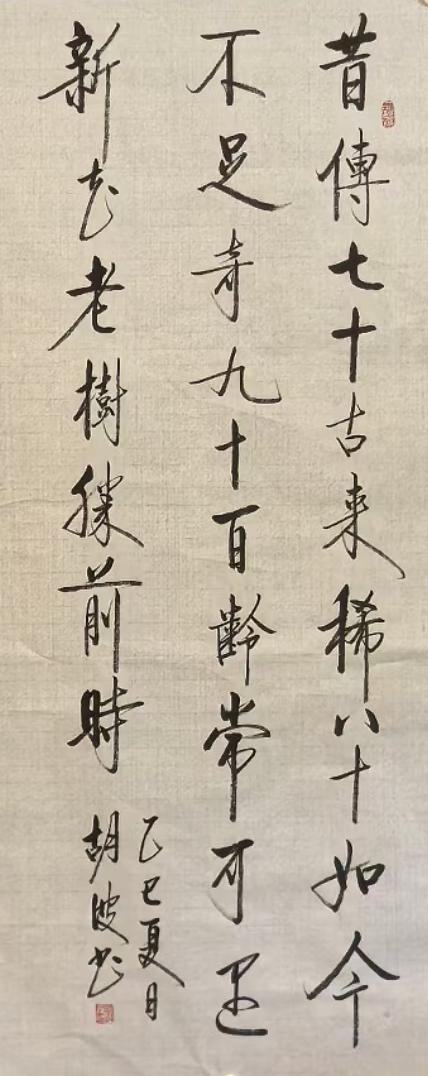 昔傳七十古來稀八十如今
不足奇九十百齡常可遇
新花老樹勝前時
乙巳夏日
胡波书